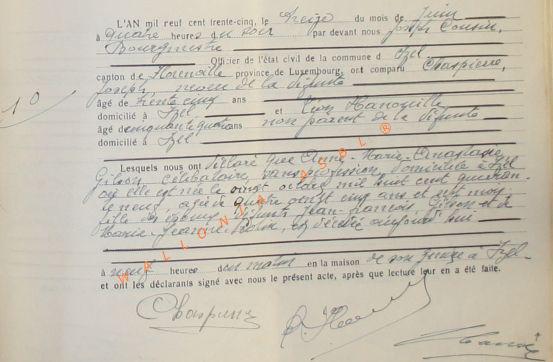 L'AN mil neuf cent trente-cinq, le treize du mois de Juin
à quatre heures du soir par devant nous Joseph Consin,
Bourgmestre
Officier de l'état civil de la commune d' Izel
canton de Florenville province de Luxembourg, ont comparu Chaspierre,
Joseph, neveu de la défunte
âgé de trente cinq ans
domicilié à Izel et Léon Hanouille
âgé de cinquante quatre ans non parent de la défunte
domicilié à Izel
10
Lesquels nous ont déclaré que Anne-Marie-Anastasie
Gilson, célibataire, sans profession, domiciliée à Izel
où elle est née le vingt octobre mil huit cent quarante-
neuf, âgée de quatre vingt cinq ans et mois,
fille des époux défunts Jean-François Gilson et de
Marie-Jeanne est décédée aujourd'hui
à neuf heures du matin en la maison de à Izel
et ont les déclarants signé avec nous le présent acte, après que lecture leur en a été faite.
WALLONIA ASBL ®
Chaspierre